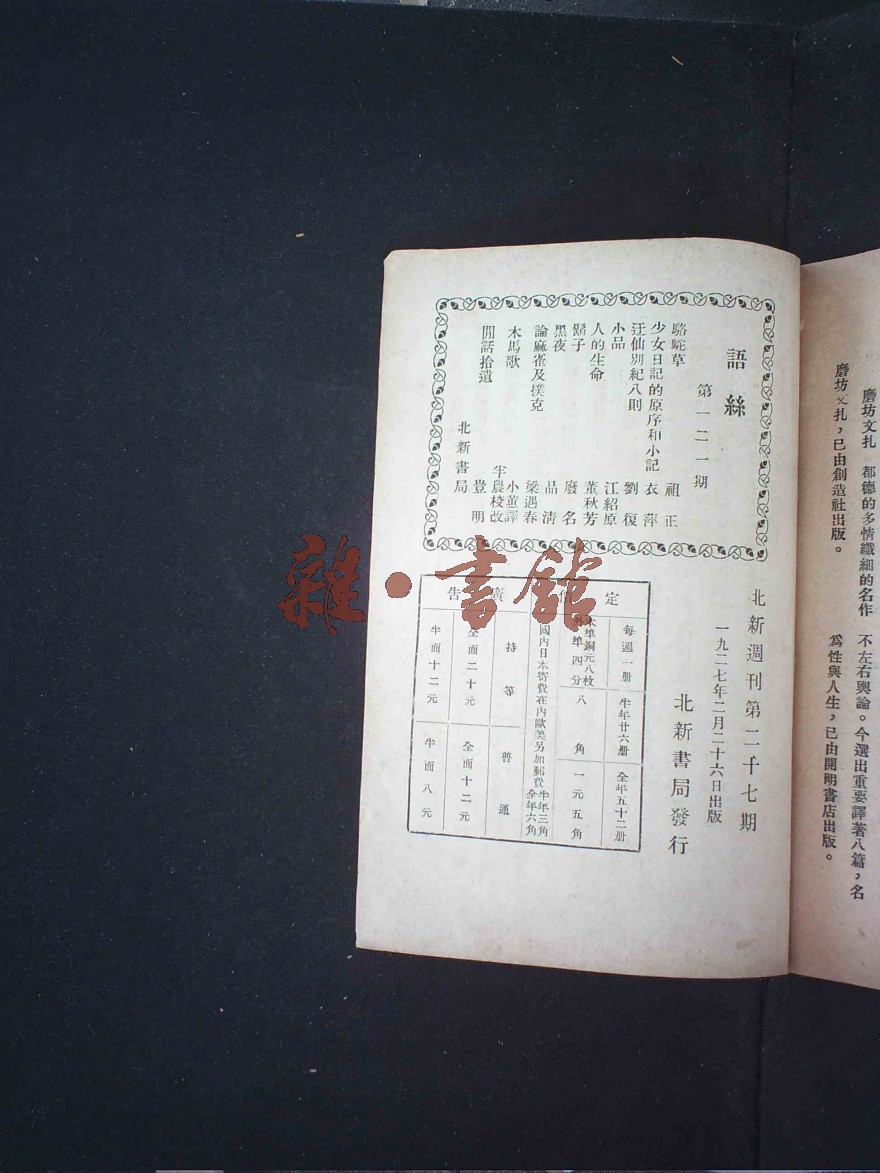 磨坊文扎 都德的多情纖細的名作
磨坊文扎,已由創造社出版。
不左右輿論。今選出重要譯著八篇,名
爲性與人生,已由開明書店出版。
語絲
第一二一期
駱駝草 祖正
少女日記的原序和小記 衣萍
迂仙別紀八則 劉復
小品 江紹原
人的生命 董秋芳
鬍子 廢名
黑夜 品清
論麻雀及撲克 梁遇春
木馬歌 小蕙譯 半農校改
閒話拾遺 豈明
北新書局
北新週刊第二十七期
一九二七年二月二十六日出版
北新書局發行
定價
每週一册 半年廿六册 全年五十二册
本埠銅元八枚
外埠四分 八角 一元五角
國內日本寄費在內歐美另加郵費 半年三角 全年六角
廣告
特等 普通
全面二十元 全面十二元
半面十二元 半面八元
雜·書館